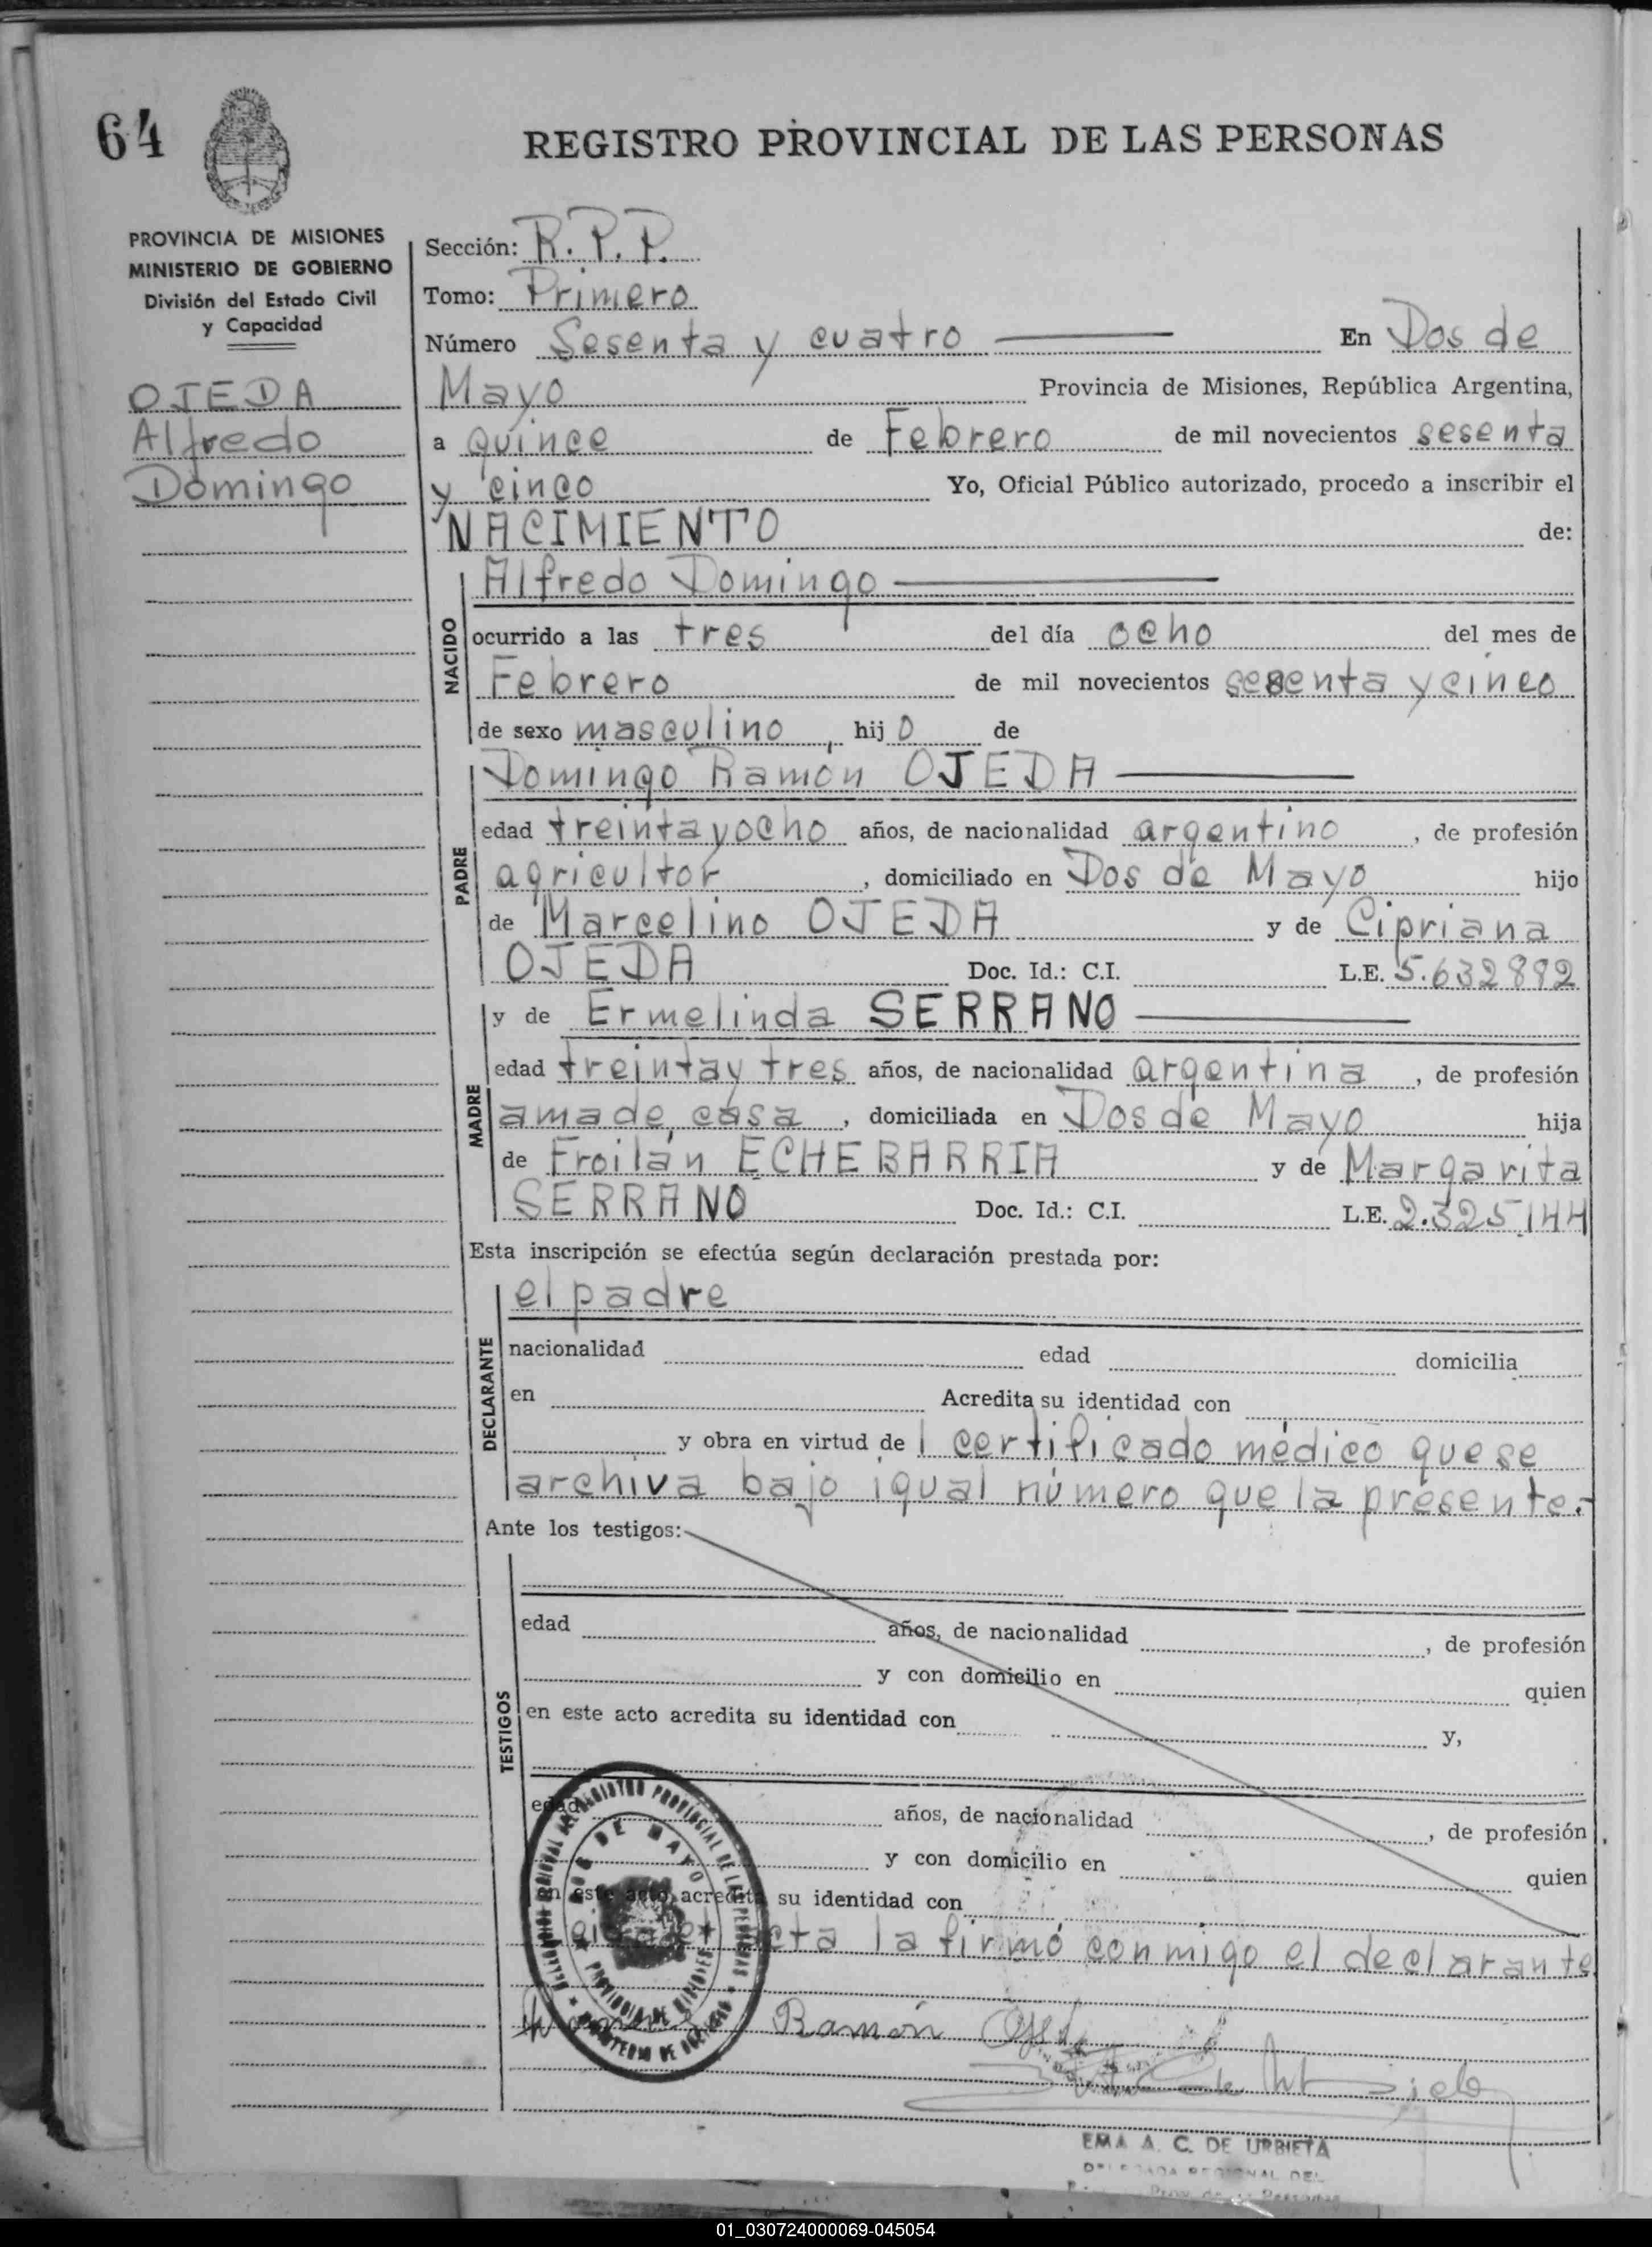 64
REGISTRO PROVINCIAL DE LAS PERSONAS
PROVINCIA DE MISIONES
MINISTERIO DE GOBIERNO
División del Estado Civil
y Capacidad
OJEDA
Alfredo
Domingo
Sección: R. P. P.
Tomo: Primero
Número Sesenta y cuatro En Dos de
Mayo Provincia de Misiones, República Argentina,
a quince de Febrero de mil novecientos sesenta
y cinco Yo, Oficial Público autorizado, procedo a inscribir el
NACIMIENTO de:
NACIDO
Alfredo Domingo
ocurrido a las tres del día ocho del mes de
Febrero de mil novecientos sesenta y cinco
de sexo masculino, hijo de
PADRE
Domingo Ramón OJEDA
edad treinta y ocho años, de nacionalidad argentino, de profesión
agricultor, domiciliado en Dos de Mayo hijo
de Marcelino OJEDA y de Cipriana
OJEDA Doc. Id.: C.I. L.E. 5.632892
MADRE
y de Ermelinda SERRANO
edad treinta y tres años, de nacionalidad argentina, de profesión
ama de casa, domiciliada en Dos de Mayo hija
de Froilán ECHEBARRIA y de Margarita
SERRANO Doc. Id.: C.I. L.E. 2.325144
Esta inscripción se efectúa según declaración prestada por:
DECLARANTE
el padre
nacionalidad edad domicilia
en Acredita su identidad con
y obra en virtud de 1 certificado médico que se
archiva bajo igual número que la presente.-
Ante los testigos:
TESTIGOS
edad años, de nacionalidad , de profesión
y con domicilio en quien
en este acto acredita su identidad con y,
edad años, de nacionalidad , de profesión
y con domicilio en quien
en este acto acredita su identidad con
acta la firmó conmigo el declarante
REGISTRO PROVINCIAL DE LAS PERSONAS
DOS DE MAYO
PROVINCIA DE MISIONES
MINISTERIO DE GOBIERNO
Ramón
EMA A. C. DE URBIETA
DELEGADA REGIONAL DEL
01_030724000069-045054